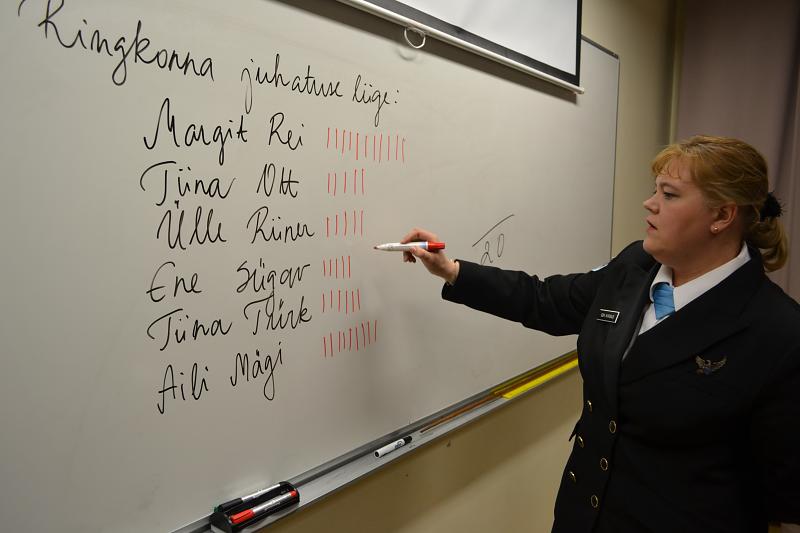 Ringkonna juhatuse liige:
Margit Rei
Tiina Ott
Ülle Riiner
Ene Sügav
Tiina Türk
Aili Mägi
20